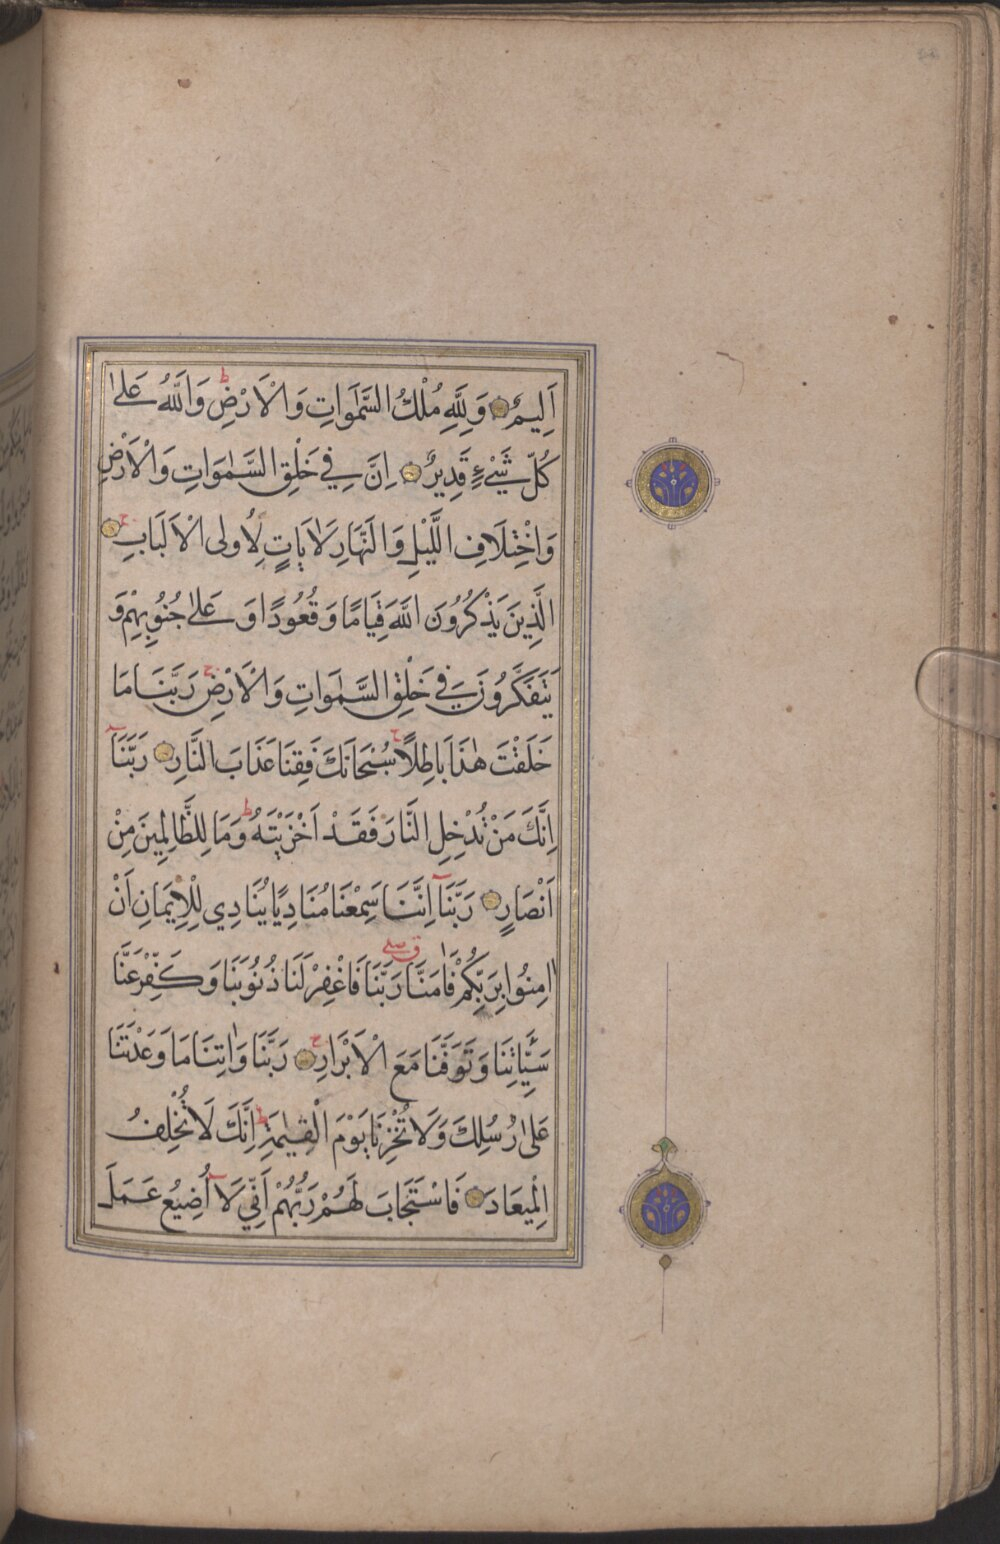 اَلِيمٌ وَلِلَّهِ مُلْكُ السَّمٰوَاتِ وَالْاَرْضِ ط وَاللَّهُ عَلٰى
كُلِّ شَيْءٍ قَدِيرٌ اِنَّ فِي خَلْقِ السَّمٰوَاتِ وَالْاَرْضِ
وَاخْتِلَافِ اللَّيْلِ وَالنَّهَارِ لَاٰيَاتٍ لِاُولِى الْاَلْبَابِ ج
الَّذِينَ يَذْكُرُونَ اللَّهَ قِيَامًا وَقُعُودًا وَعَلٰى جُنُوبِهِمْ وَ
يَتَفَكَّرُونَ فِي خَلْقِ السَّمٰوَاتِ وَالْاَرْضِ ج رَبَّنَا مَا
خَلَقْتَ هٰذَا بَاطِلًا ج سُبْحَانَكَ فَقِنَا عَذَابَ النَّارِ رَبَّنَآ
اِنَّكَ مَنْ تُدْخِلِ النَّارَ فَقَدْ اَخْزَيْتَهُ ط وَمَا لِلظَّالِمِينَ مِنْ
اَنْصَارٍ رَبَّنَآ اِنَّنَا سَمِعْنَا مُنَادِيًا يُنَادِي لِلْاِيمَانِ اَنْ
اٰمِنُوا بِرَبِّكُمْ فَاٰمَنَّا ق صلى رَبَّنَا فَاغْفِرْ لَنَا ذُنُوبَنَا وَكَفِّرْ عَنَّا
سَيِّاٰتِنَا وَتَوَفَّنَا مَعَ الْاَبْرَارِ ج رَبَّنَا وَاٰتِنَا مَا وَعَدْتَنَا
عَلٰى رُسُلِكَ وَلَا تُخْزِنَا يَوْمَ الْقِيٰمَةِ ط اِنَّكَ لَا تُخْلِفُ
الْمِيعَادَ فَاسْتَجَابَ لَهُمْ رَبُّهُمْ اَنِّي لَآ اُضِيعُ عَمَلَ